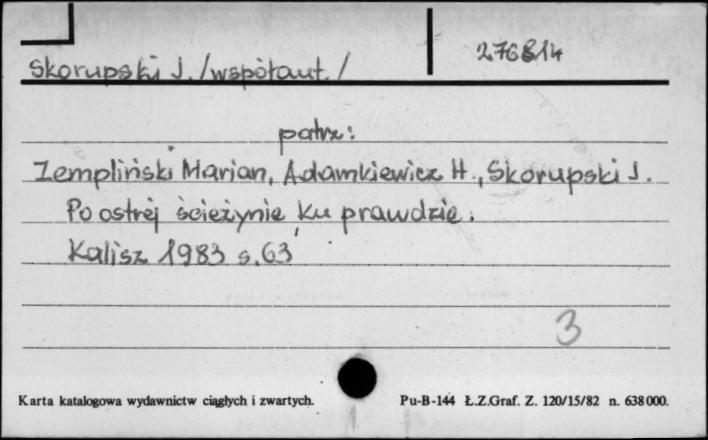 Skorupski J. /współaut./
276814
patrz:
Zempliński Marian, Adamkiewicz H., Skorupski J.
Po ostrej ścieżynie ku prawdzie.
Kalisz 1983 s. 63
3
Karta katalogowa wydawnictw ciągłych i zwartych.
Pu-B-144 Ł.Z.Graf. Z. 120/15/82 n. 638000.